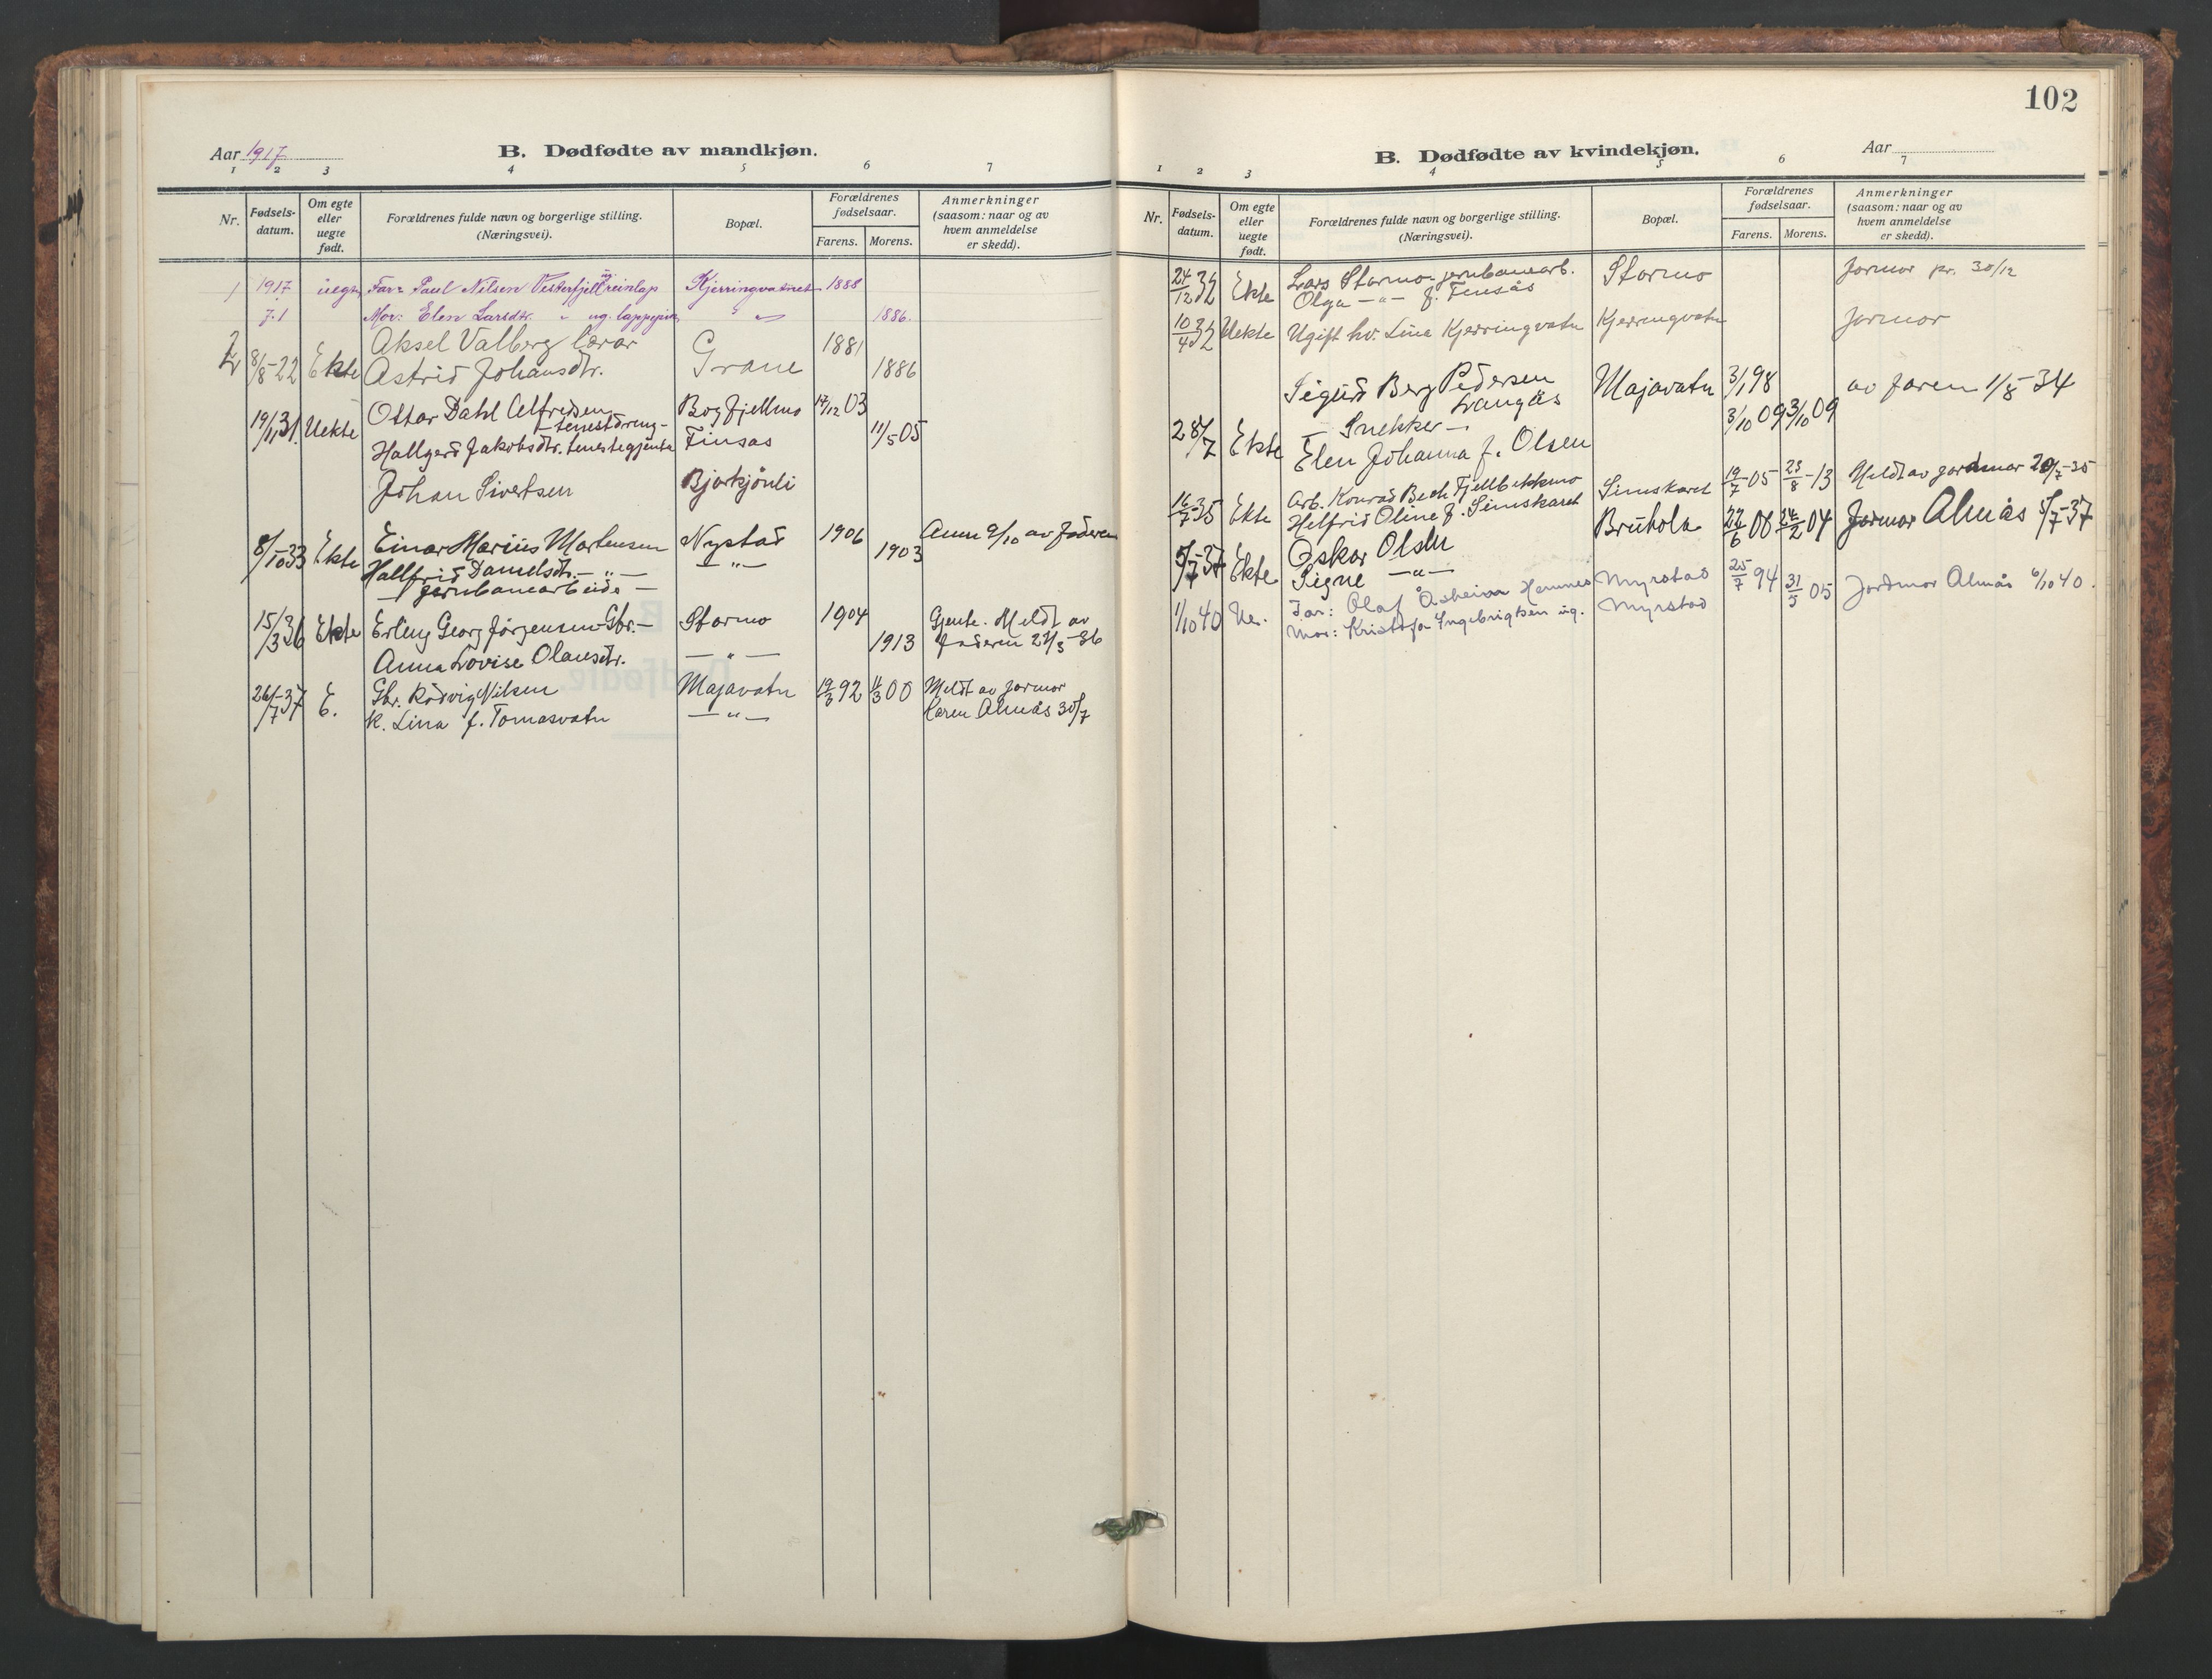 102
Aar 1917
B. Dødfødte av mandkjøn.
1 2 3 4 5 6 7
Nr.
Fødsels-datum.
Om egte eller uegte født.
Forældrenes fulde navn og borgerlige stilling. (Næringsvei).
Bopæl.
Forældrenes fødselsaar.
Farens. Morens.
Anmerkninger (saasom: naar og av hvem anmeldelse er skedd).
1 1917 uegte Far: Paul Nilsen Vesterfjell ug. reinlap Kjerringvatnet 1888
7.1 Mor: Elen Larsdtr. " ug. lappepike " " 1886.
2 8/8-22 Ekte Aksel Valberg lærar Grane 1881
Astrid Johansdtr. 1886
19/1 31. Uekte Ottar Dahl Alfredsen Bogfjellmo 17/12 03
- tenestdreng -
Hallgerd Jakobsdtr. tenestegjenta Finsås 11/5 05
Johan Sivertsen Bjørkjönli
8/10 33 Ekte Einar Marius Mortensen Nystad 1906 Anm 9/10 av faderen
Hallfrid Danielsdtr. — " — — " — 1903
— jernbanearbeide —
15/3 36 Ekte Erling Georg Jørgensen - Gbr. - Stormo 1904 Gjente. Meldt av
Anna Lovise Olausdtr. — " — 1913 faderen 27/3-36
26/7-37 E. Gbr. Rödvig Nilsen Majavatn 19/3 92 11/3 00 Meldt av jormor
K. Lina f. Tomasvatn — " — Karen Almås 30/7
B. Dødfødte av kvindekjøn.
Aar
1 2 3 4 5 6 7
Nr.
Fødsels-datum.
Om egte eller uegte født.
Forældrenes fulde navn og borgerlige stilling. (Næringsvei).
Bopæl.
Forældrenes fødselsaar.
Farens. Morens.
Anmerkninger (saasom: naar og av hvem anmeldelse er skedd).
24/12 32 Ekte Lars Stormo - jernbanearb. Stormo Jormor pr. 30/12
Olga — " — f. Finsås
10/4 32 Uekte Ugift kv. Lina Kjerringvatn Kjerringvatn Jormor
Sigurd Berg Pedersen Majavatn 3/1 98 av faren 1/8-34
Langås
28/7 Ekte — Snekker — 3/10 09 3/10 09
Elen Johanna f. Olsen
16/7 35 Ekte Arb. Konrad Bech Fjellbekkmo Simskaret 19/7-05 23/8-13 Meldt av jordmor 20/7-35
Helfrid Oline f. Simskaret
5/7-37 Ekte Oskar Olsen Bruhola 22/6 06 24/2 04 Jormor Almås 5/7-37
Signe — " —
1/10 40 Ue. Far: Olaf Åsheim Hemnes Myrstad 25/7 94 31/5 05 Jordmor Almås 6/10 40.
Mor: Kristofa Ingebrigtsen ug. Myrstad